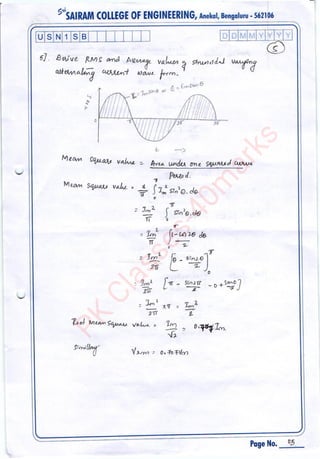 SAIRAM COLLEGE OF ENGINEERING, Anekal, Bengaluru - 562106
U S N 1 S B
D D M M Y Y Y Y
5
5]. Derive RMS and Average values of sinusoidal varying
alternating current wave form.
Mean Square value = Area under one squared curve
Period.
Mean Square value = 1/π ∫₀^π Im² sin²θ. dθ
= Im²/π ∫₀^π sin²θ. dθ
= Im²/π ∫₀^π (1 - cos 2θ)/2 dθ
= Im²/2π [θ - sin2θ/2]₀^π
= Im²/2π [π - sin2π/2 - 0 + sin0/2]
= Im²/2π × π = Im²/2
Root Mean Square value = Im/√2 = 0.707 Im
Similarly Vrms = 0.707Vm
PK Classes-40marks
Page No. 05